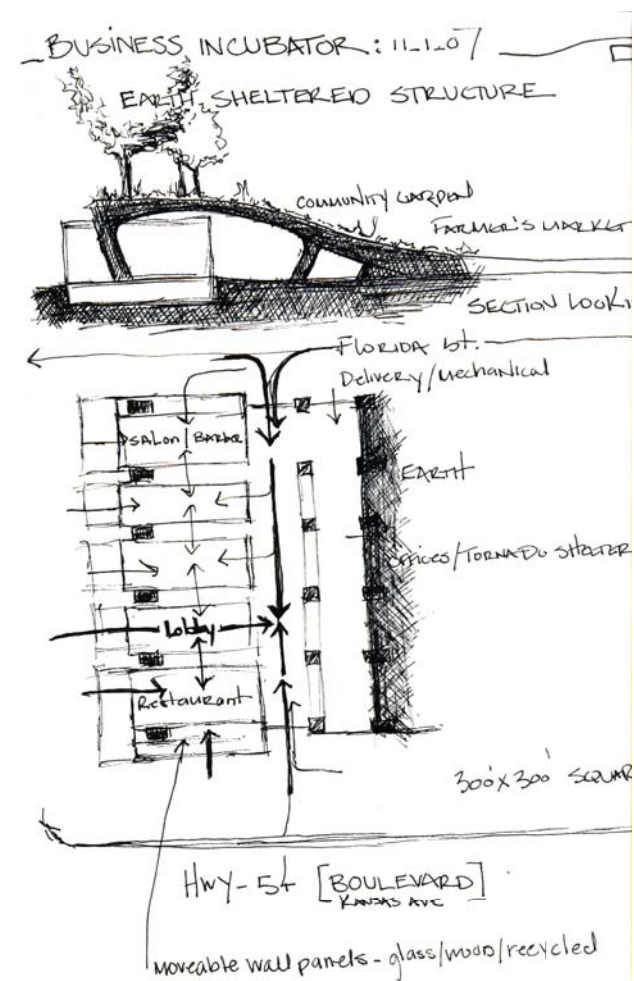 BUSINESS INCUBATOR: 11.1.07
EARTH SHELTERED STRUCTURE
COMMUNITY GARDEN
FARMER'S MARKET
SECTION LOOKI
FLORIDA St.
Delivery/Mechanical
SALON | BARBER
EARTH
OFFICES/TORNADO SHELTER
Lobby
Restaurant
300'x300' SQUAR
HWY-54 [BOULEVARD]
KANSAS AVE
moveable wall panels - glass/wood/recycled